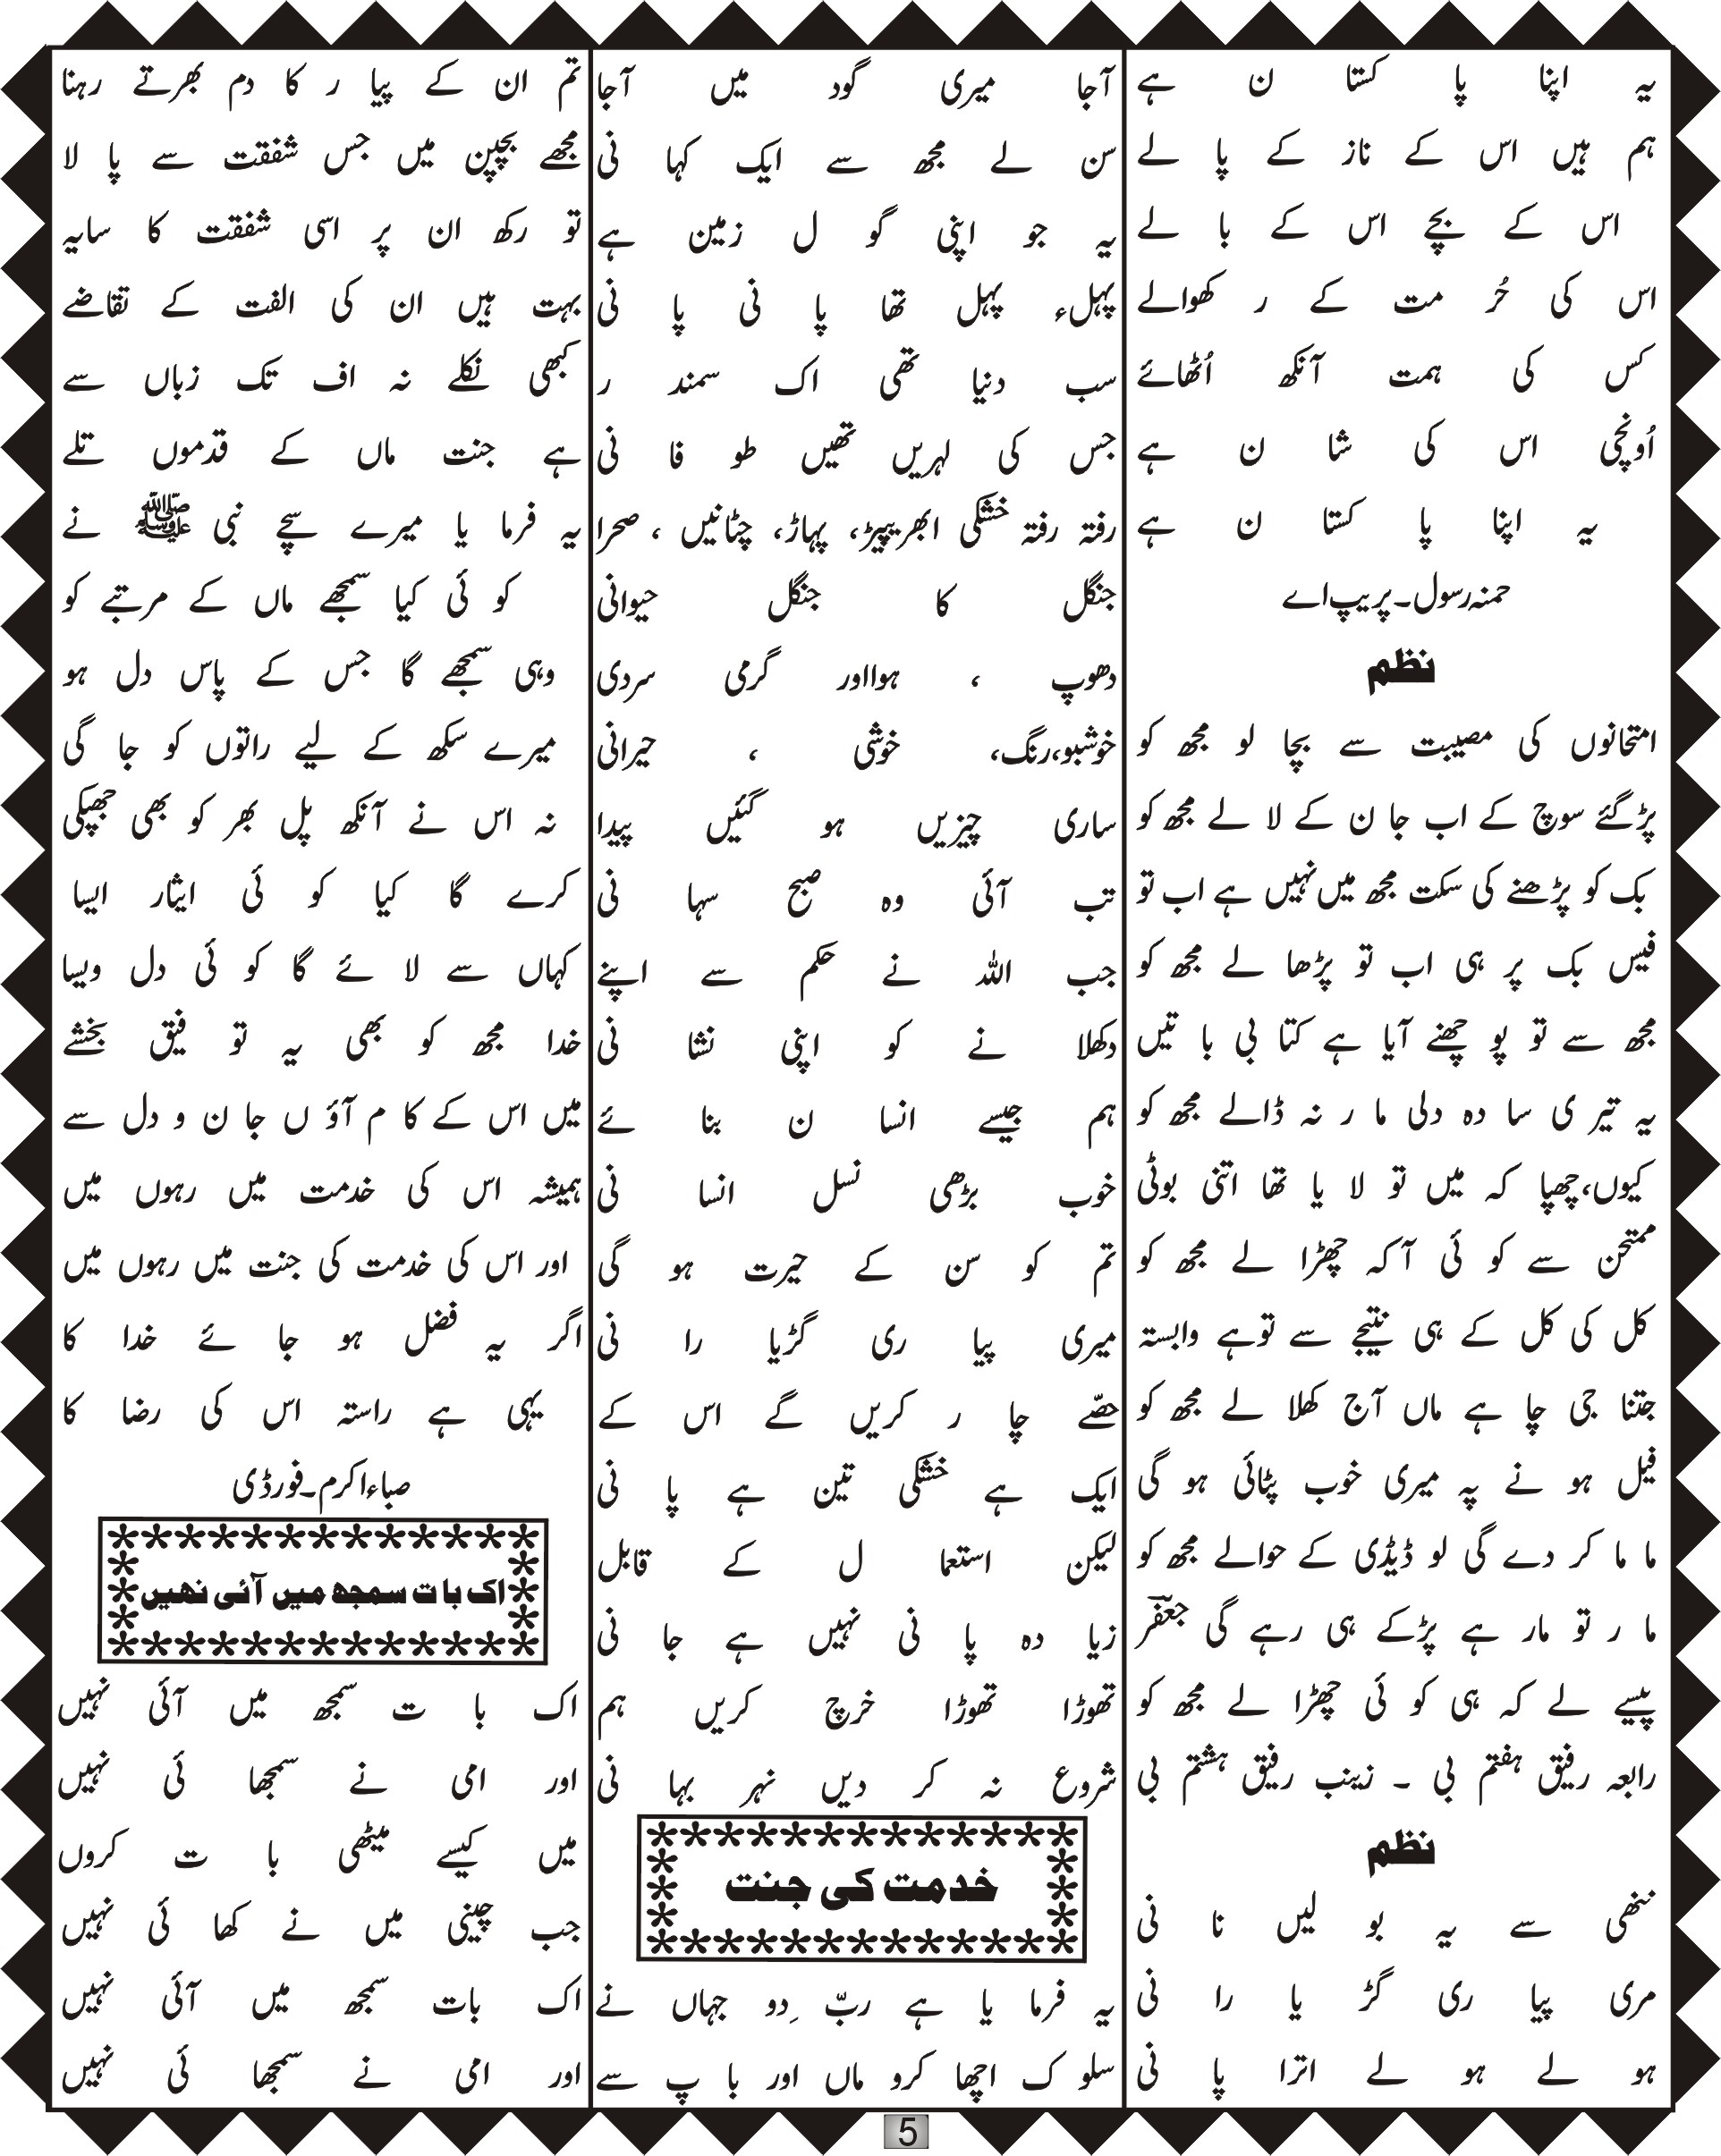 یہ اپنا پا کستا ن ہے
ہم ہیں اس کے ناز کے پا لے
اس کے بچے اس کے با لے
اس کی حُر مت کے ر کھوالے
کس کی ہمت آنکھ اُٹھائے
اُونچی اس کی شا ن ہے
یہ اپنا پا کستا ن ہے
حمنہ رسول۔پریپ اے
نظم
امتحانوں کی مصیبت سے بچا لو مجھ کو
پڑگئے سوچ کے اب جا ن کے لا لے مجھ کو
بک کو پڑھنے کی سکت مجھ میں نہیں ہے اب تو
فیس بک پر ہی اب تو پڑھا لے مجھ کو
مجھ سے تو پو چھنے آیا ہے کتا بی با تیں
یہ تیر ی سا دہ دلی ما ر نہ ڈالے مجھ کو
کیوں،چھپا کہ میں تو لا یا تھا اتنی بوٹی
ممتحن سے کو ئی آ کہ چھڑا لے مجھ کو
کل کی کل کے ہی نتیجے سے توہے وابستہ
جتنا جی چا ہے ماں آج کھلا لے مجھ کو
فیل ہو نے پہ میری خوب پٹائی ہو گی
ما ما کر دے گی لو ڈیڈی کے حوالے مجھ کو
ما ر تو مار ہے پڑکے ہی رہے گی جعفر
پیسے لے کہ ہی کو ئی چھڑا لے مجھ کو
رابعہ رفیق ہفتم بی ۔ زینب رفیق ہشتم بی
نظم
ننھی سے یہ بو لیں نا نی
مری پیا ری گڑ یا را نی
ہو لے ہو لے اترا پا نی
آجا میری گود میں آجا
سن لے مجھ سے ایک کہا نی
یہ جو اپنی گو ل زمین ہے
پہلء پہل تھا پا نی پا نی
سب دنیا تھی اک سمند ر
جس کی لہریں تھیں طو فا نی
رفتہ رفتہ خشکی ابھریپیڑ، پہاڑ، چٹانیں ، صحرا
جنگل کا جنگل حیوانی
دھوپ ، ہوااور گرمی سردی
خوشبو،رنگ، خوشی ، حیرانی
ساری چیزیں ہو گئیں پیدا
تب آئی وہ صبح سہا نی
جب اللہ نے حکم سے اپنے
دکھلا نے کو اپنی نشا نی
ہم جیسے انسا ن بنا ئے
خوب بڑھی نسل انسا نی
تم کو سن کے حیرت ہو گی
میری پیا ری گڑیا را نی
حصّے چا ر کریں گے اس کے
ایک ہے خشکی تین ہے پا نی
لیکن استعما ل کے قابل
زیا دہ پا نی نہیں ہے جا نی
تھوڑا تھوڑا خرچ کریں ہم
شروع نہ کر دیں نہر بہا نی
خدمت کی جنت
یہ فرما یا ہے ربّ ِدو جہاں نے
سلو ک اچھا کرو ماں اور با پ سے
تم ان کے پیا ر کا دم بھرتے رہنا
مجھے بچپن میں جس شفقت سے پا لا
تو رکھ ان پر اسی شفقت کا سایہ
بہت ہیں ان کی الفت کے تقاضے
کبھی نکلے نہ اف تک زباں سے
ہے جنت ماں کے قدموں تلے
یہ فرما یا میرے سچے نبی ﷺ نے
کو ئی کیا سمجھے ماں کے مرتبے کو
وہی سمجھے گا جس کے پاس دل ہو
میرے سکھ کے لیے راتوں کو جا گی
نہ اس نے آنکھ پل بھر کو بھی جھپکی
کرے گا کیا کو ئی ایثار ایسا
کہاں سے لا ئے گا کو ئی دل ویسا
خدا مجھ کو بھی یہ تو فیق بخشے
میں اس کے کا م آؤ ں جا ن و دل سے
ہمیشہ اس کی خدمت میں رہوں میں
اور اس کی خدمت کی جنت میں رہوں میں
اگر یہ فضل ہو جا ئے خدا کا
یہی ہے راستہ اس کی رضا کا
صباءاکرم۔فورڈی
اک با ت سمجھ میں آئی نہیں
اک با ت سمجھ میں آئی نہیں
اور امی نے سمجھا ئی نہیں
میں کیسے میٹھی با ت کروں
جب چینی میں نے کھا ئی نہیں
اک بات سمجھ میں آئی نہیں
اور امی نے سمجھا ئی نہیں
5